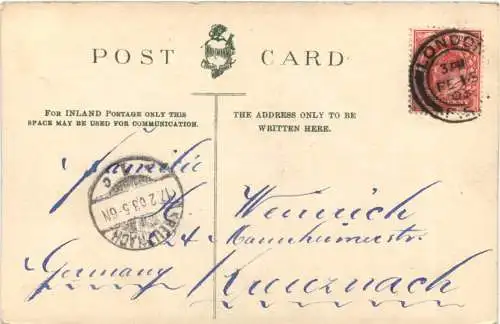 POST CARD
LONDON
3 PM
FOR INLAND POSTAGE ONLY THIS
SPACE MAY BE USED FOR COMMUNICATION.
THE ADDRESS ONLY TO BE
WRITTEN HERE.
Familie
Weinrich
KREUZNACH
17.2.03.5-6N
24 Mannheimerstr.
Germany Kreuznach